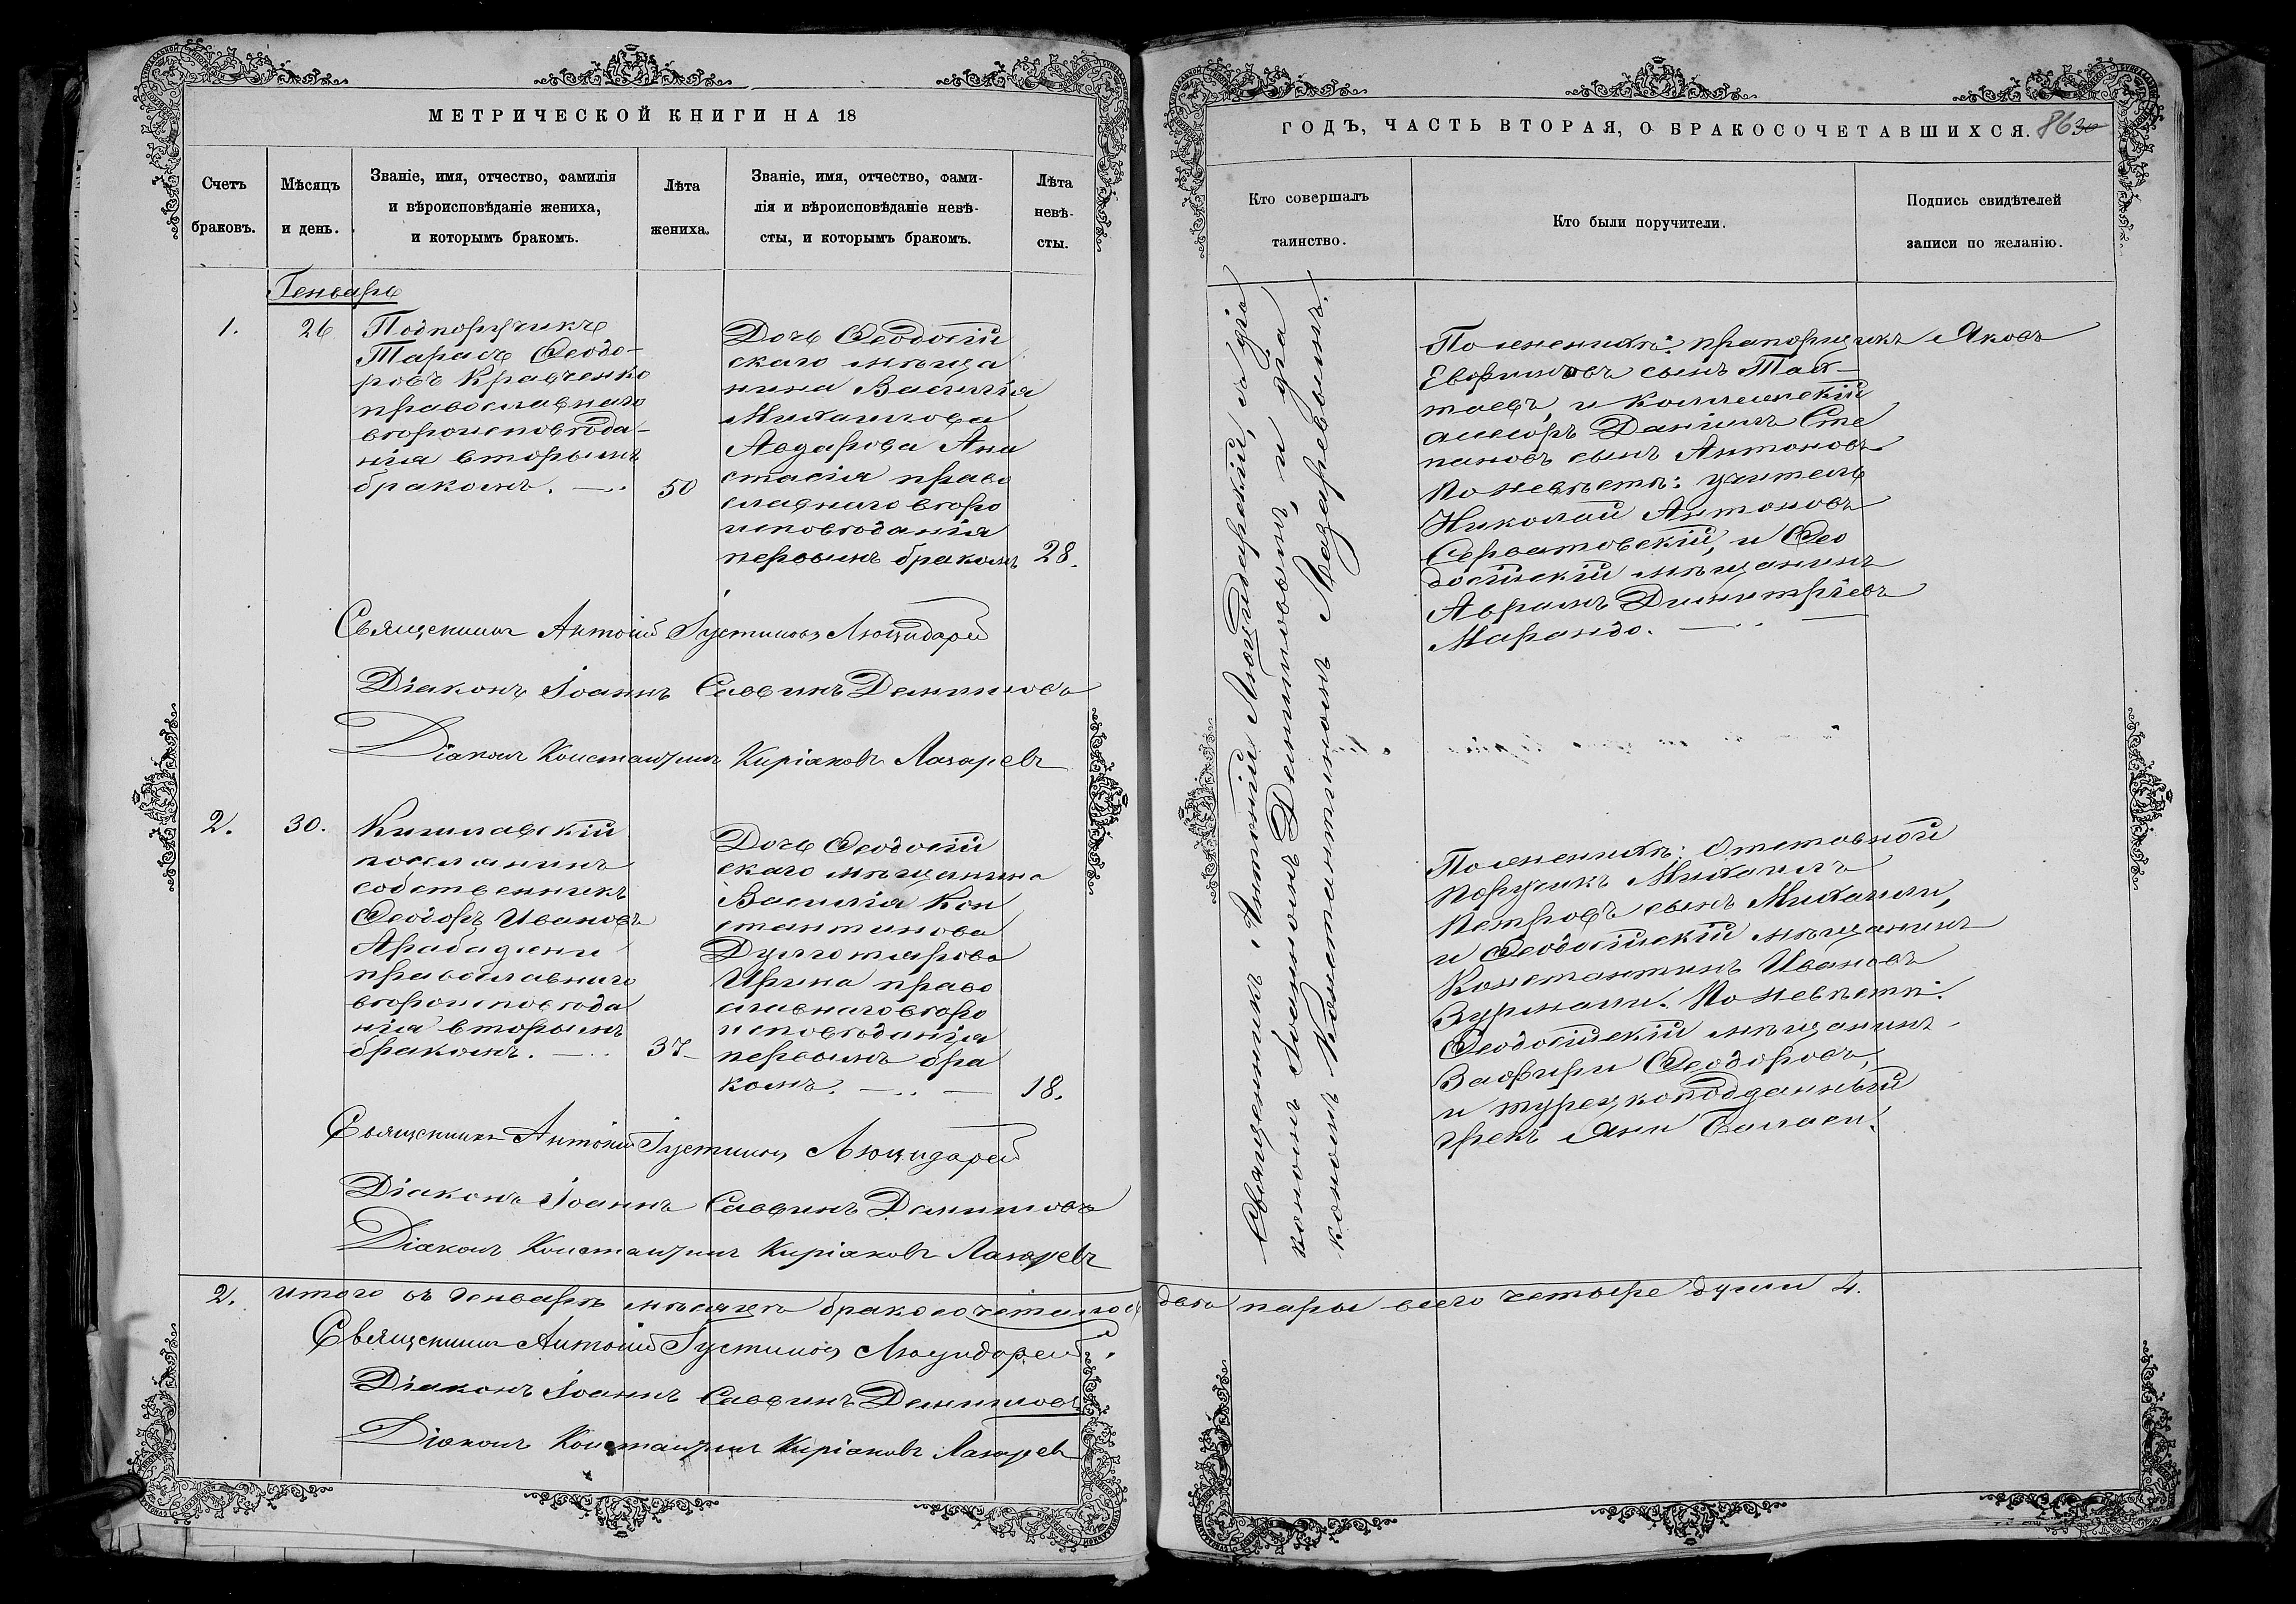 МЕТРИЧЕСКОЙ КНИГИ НА 18
Счетъ браковъ.
Мѣсяцъ и день.
Званіе, имя, отчество, фамилія
и вѣроисповѣданіе жениха,
и которымъ бракомъ.
Лѣта
жениха.
Званіе, имя, отчество, фами-
лія и вѣроисповѣданіе невѣ-
сты, и которымъ бракомъ.
Лѣта
невѣ-
сты.
Генварь
1.
26
Подпоручикъ
Тарасъ Ѳеодо-
ровъ Кравченко
православнаго
вѣроисповѣда-
нія вторымъ
бракомъ.
50
Дочь Ѳеодосій
скаго мѣща
нина Василія
Михаилова
Авдарова Ана
стасія право
славнаго вѣро
исповѣданія
первымъ бракомъ
28.
Священникъ Антоній Іустиновъ Люцидарскій
Діаконъ Іоаннъ Саввинъ Демишовъ
Діаконъ Константинъ Киріаковъ Лазаревъ
2.
30.
Кишлавскій
поселянинъ
собственникъ
Ѳеодоръ Ивановъ
Арабаджи
православнаго
вѣроисповѣда
нія вторымъ
бракомъ.
37
Дочь Ѳеодосій
скаго мѣщанина
Василія Кон
стантинова
Ирина право
славнаго вѣро
исповѣданія
первымъ бра
комъ.
18.
Священникъ Антоній Іустиновъ Люцидарскій
Діаконъ Іоаннъ Саввинъ Демишовъ
Діаконъ Константинъ Киріаковъ Лазаревъ
2. Итого въ Генварѣ мѣсяцѣ бракосочеталось двѣ пары всего четыре души 4.
Священникъ Антоній Іустиновъ Люцидарскій
Діаконъ Іоаннъ Саввинъ Демишовъ
Діаконъ Константинъ Киріаковъ Лазаревъ
ГОДЪ, ЧАСТЬ ВТОРАЯ, О БРАКОСОЧЕТАВШИХСЯ.
86 30
Кто совершалъ
таинство.
Кто были поручители.
Подпись свидѣтелей
записи по желанію.
Священникъ Антоній Люцидарскій, съ діа
кономъ Іоанномъ Демишовымъ, и діа
кономъ Константиномъ Лазаревымъ.
По женихѣ: прапорщикъ Яковъ
сынъ
и Коллежскій
асессоръ Даніилъ Сте
пановъ сынъ Антоновъ
По невѣстѣ: учитель
Николай Антоновъ
Серватовскій, и Ѳео
досійскій мѣщанинъ
Аврамъ Димитріевъ
Марандо.
По женихѣ: Отставной
Поручикъ Михаилъ
Петровъ сынъ Михаили,
и Ѳеодосійскій мѣщанинъ
Константинъ Ивановъ
Зурнали. По невѣстѣ:
Ѳеодосійскій мѣщанинъ
Заѳири Ѳеодоровъ,
и турецкоподданный
грекъ Яни